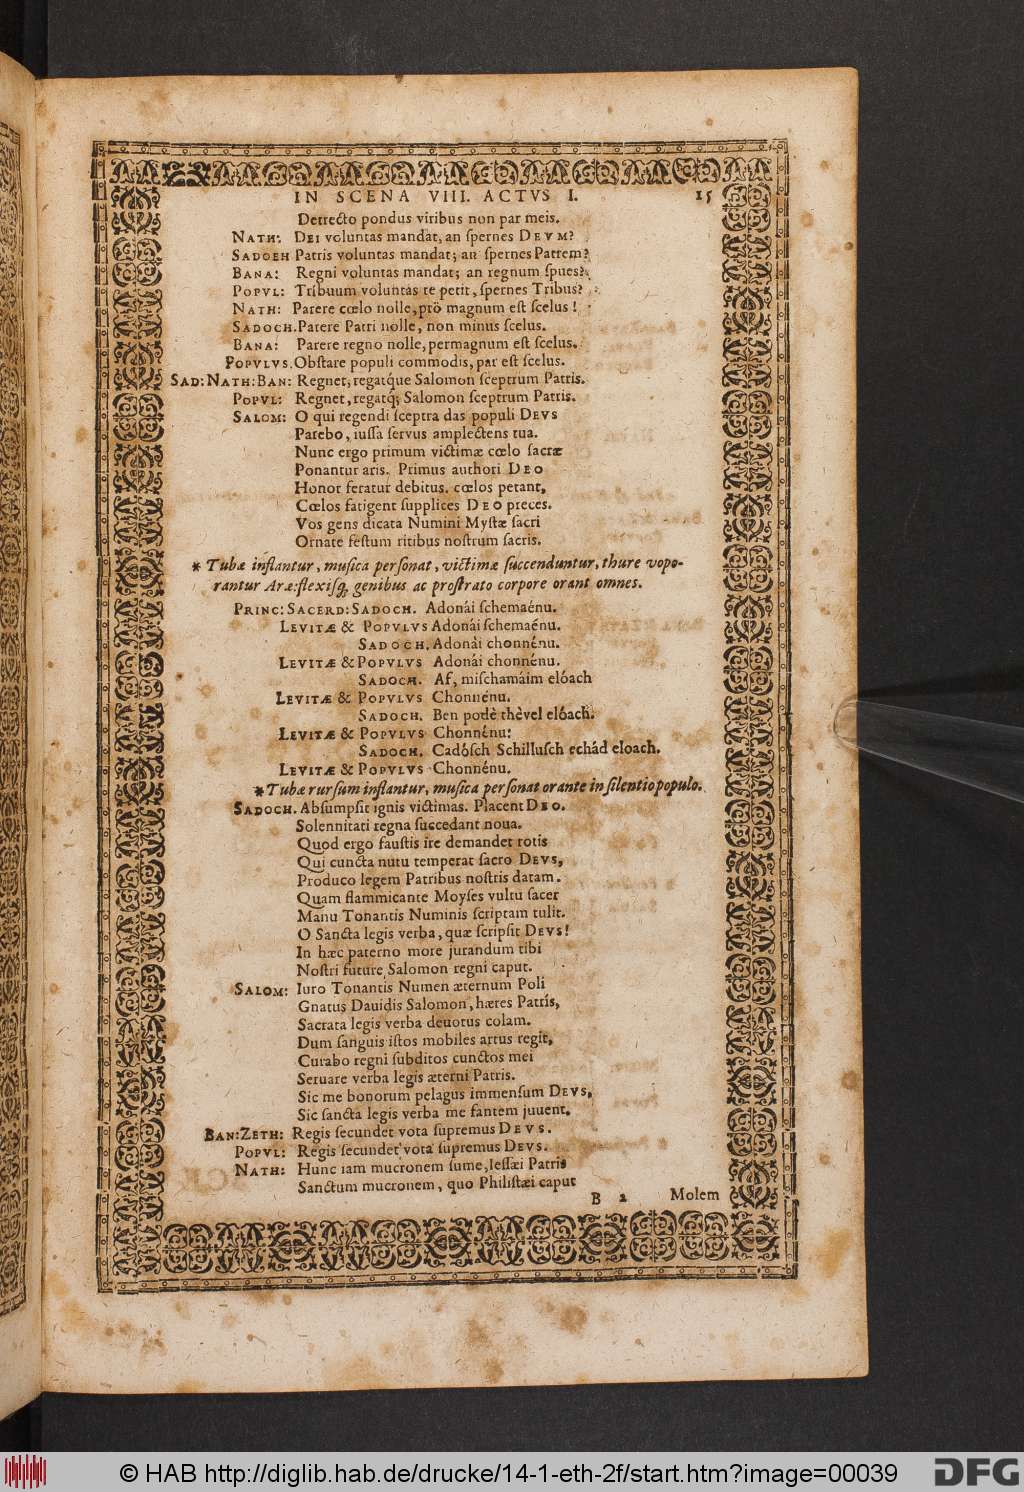 IN SCENA VIII. ACTVS I. 15
Detrecto pondus viribus non par meis.
NATH: DEI voluntas mandat, an spernes DEVM?
SADOCH Patris voluntas mandat; an spernes Patrem?
BANA: Regni voluntas mandat; an regnum spues?
POPVL: Tribuum voluntas te petit, spernes Tribus?
NATH: Parere cœlo nolle, prò magnum est scelus!
SADOCH. Parere Patri nolle, non minus scelus.
BANA: Parere regno nolle, permagnum est scelus.
POPVLVS. Obstare populi commodis, par est scelus.
SAD: NATH: BAN: Regnet, regatq́ue Salomon sceptrum Patris.
POPVL: Regnet, regatq; Salomon sceptrum Patris.
SALOM: O qui regendi sceptra das populi DEVS
Parebo, iussa servus amplectens tua.
Nunc ergo primum victimæ cœlo sacræ
Ponantur aris. Primus authori DEO
Honor feratur debitus. cœlos petant,
Cœlos fatigent supplices DEO preces.
Vos gens dicata Numini Mystæ sacri
Ornate festum ritibus nostrum sacris.
* Tubæ inflantur, musica personat, victimæ succenduntur, thure vopo-
rantur Aræ: flexisq; genibus ac prostrato corpore orant omnes.
PRINC: SACERD: SADOCH. Adonái schemaénu.
LEVITÆ & POPVLVS Adonái schemaénu.
SADOCH. Adonái chonnénu.
LEVITÆ & POPVLVS Adonái chonnénu.
SADOCH. Af, mischamáim elóach
LEVITÆ & POPVLVS Chonnénu.
SADOCH. Ben podè thèvel elóach.
LEVITÆ & POPVLVS Chonnénu:
SADOCH. Cadósch Schillusch echád eloach.
LEVITÆ & POPVLVS Chonnénu.
* Tubæ rursum inflantur, musica personat orante in silentio populo.
SADOCH. Absumpsit ignis victimas. Placent DEO.
Solennitati regna succedant noua.
Quod ergo faustis ire demandet rotis
Qui cuncta nutu temperat sacro DEVS,
Produco legem Patribus nostris datam.
Quam flammicante Moyses vultu sacer
Manu Tonantis Numinis scriptam tulit.
O Sancta legis verba, quæ scripsit DEVS!
In hæc paterno more jurandum tibi
Nostri future Salomon regni caput.
SALOM: Iuro Tonantis Numen æternum Poli
Gnatus Dauidis Salomon, hæres Patris,
Sacrata legis verba deuotus colam.
Dum sanguis istos mobiles artus regit,
Curabo regni subditos cunctos mei
Seruare verba legis æterni Patris.
Sic me bonorum pelagus immensum DEVS,
Sic sancta legis verba me fantem juuent.
BAN: ZETH: Regis secundet vota supremus DEVS.
POPVL: Regis secundet vota supremus DEVS.
NATH: Hunc iam mucronem sume, Iessæi Patris
Sanctum mucronem, quo Philistæi caput
B 2 Molem
© HAB http://diglib.hab.de/drucke/14-1-eth-2f/start.htm?image=00039
DFG